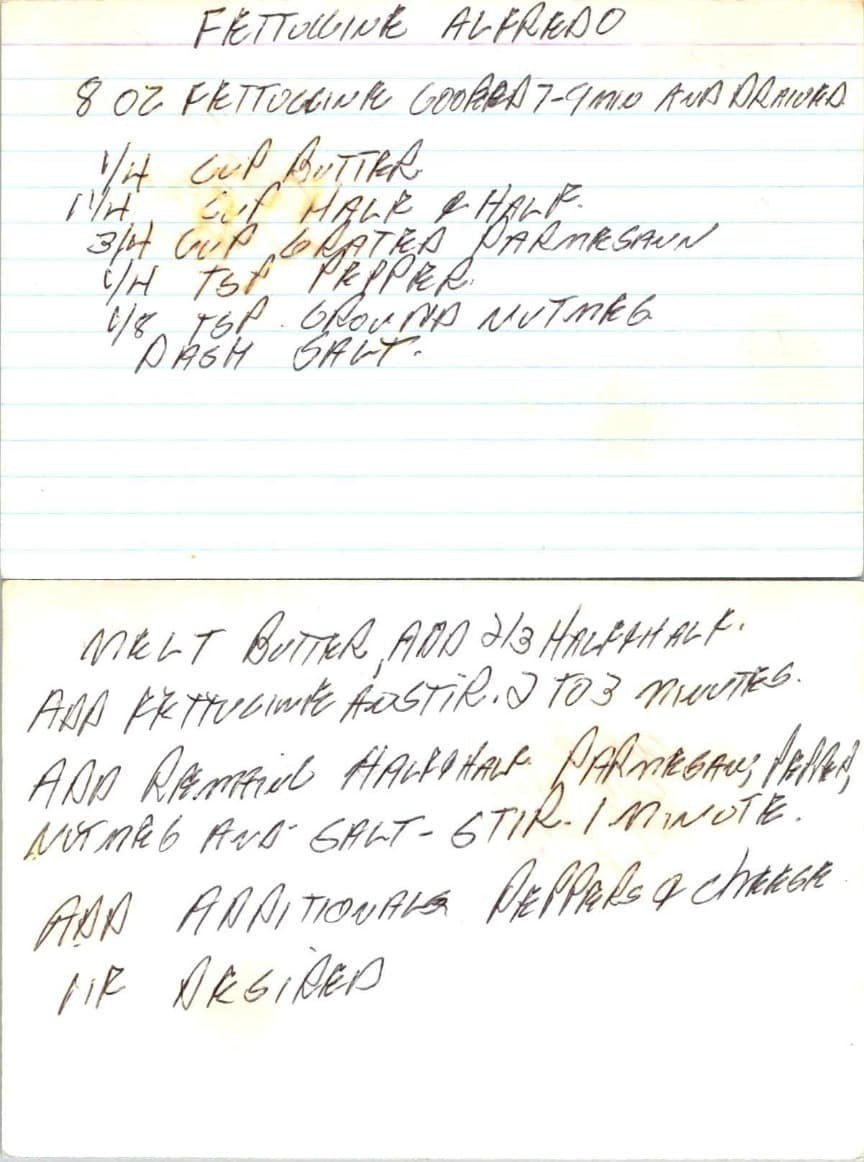 FETTUCCINE ALFREDO
8 OZ FETTUCCINE COOKED 7-9 MIN AND DRAINED
1/4 CUP BUTTER.
1 1/4 CUP HALF & HALF.
3/4 CUP GRATED PARMESANN
1/4 TSP PEPPER.
1/8 TSP. GROUND NUTMEG
DASH SALT.
MELT BUTTER, ADD 2/3 HALF&HALF.
ADD FETTUCINE AND STIR. 2 TO 3 MINUTES.
ADD REMAING HALF&HALF PARMESAN, PEPPER,
NUTMEG AND SALT - STIR - 1 MINUTE.
ADD ADDITIONAL PEPPERS & CHEESE
IF DESIRED